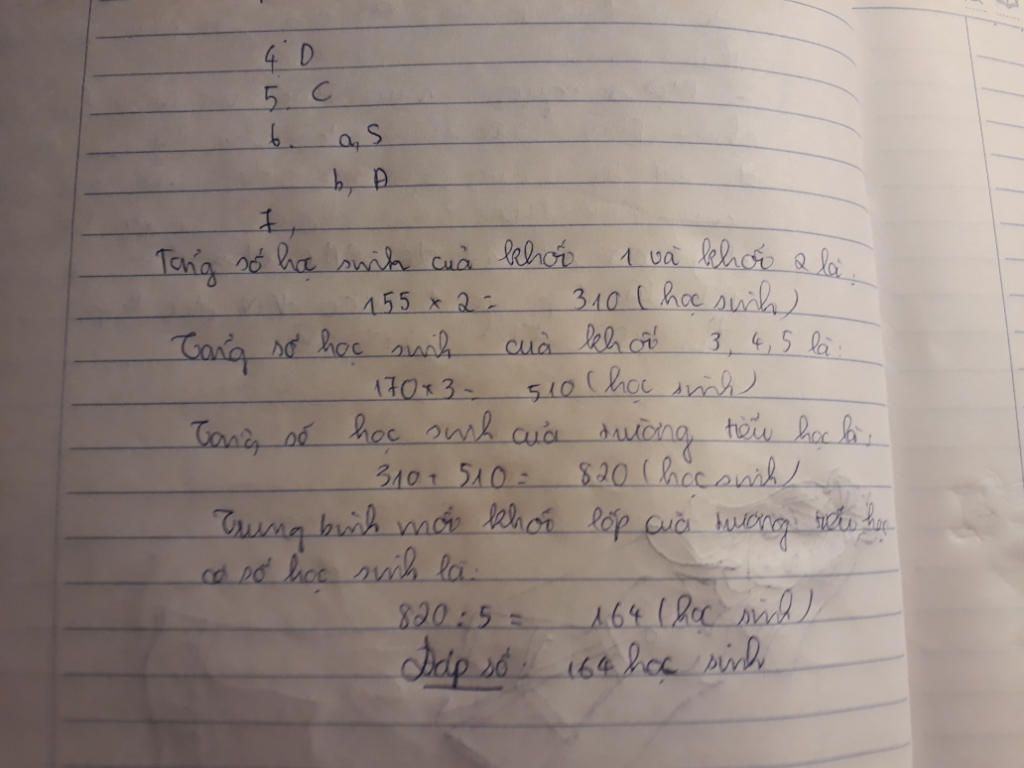 4. D
5. C
6. a, S
b, Đ
7,
Tổng số học sinh của khối 1 và khối 2 là:
155 × 2 = 310 (học sinh)
Tổng số học sinh của khối 3, 4, 5 là:
170 × 3 = 510 (học sinh)
Tổng số học sinh của trường tiểu học là:
310 + 510 = 820 (học sinh)
Trung bình mỗi khối lớp của trường tiểu học
có số học sinh là:
820 : 5 = 164 (học sinh)
Đáp số: 164 học sinh